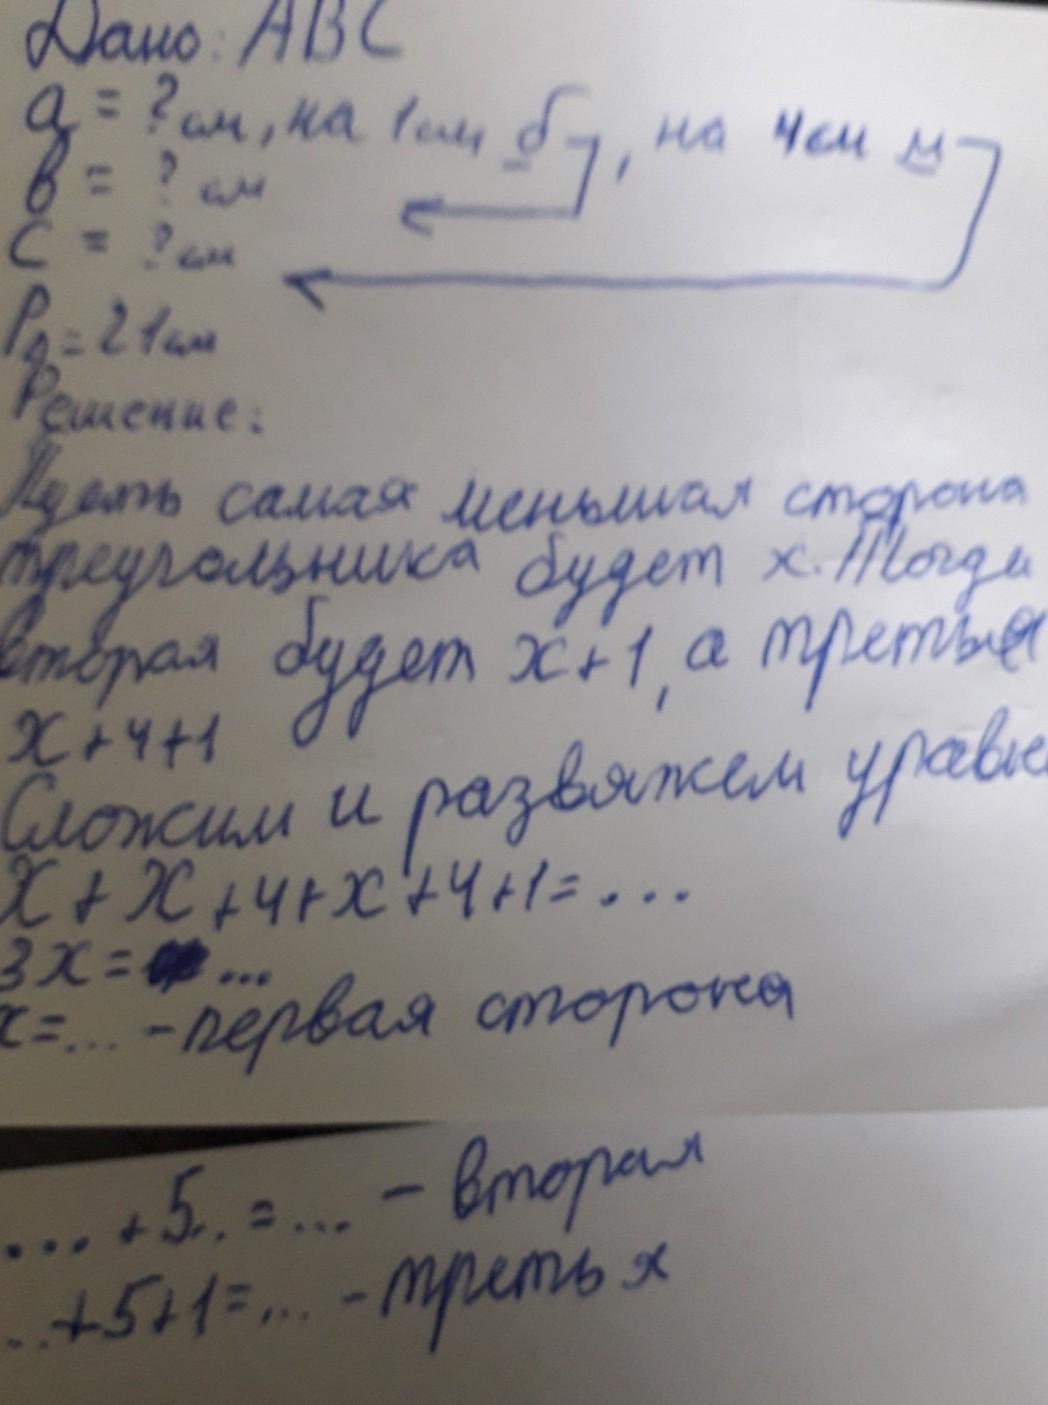 Дано: ABC
a = ? см, на 1 см б, на 4 см м
в = ? см
c = ? см
P∆ = 21 см
Решение:
Пусть самая меньшая сторона
треугольника будет x. Тогда
вторая будет x+1, а третья
x+4+1
Сложим и развяжем уравне
x + x + 4 + x + 4 + 1 = ...
3x = ...
x = ... - первая сторона
... + 5.. = ... - вторая
.. + 5 + 1 = ... - третья